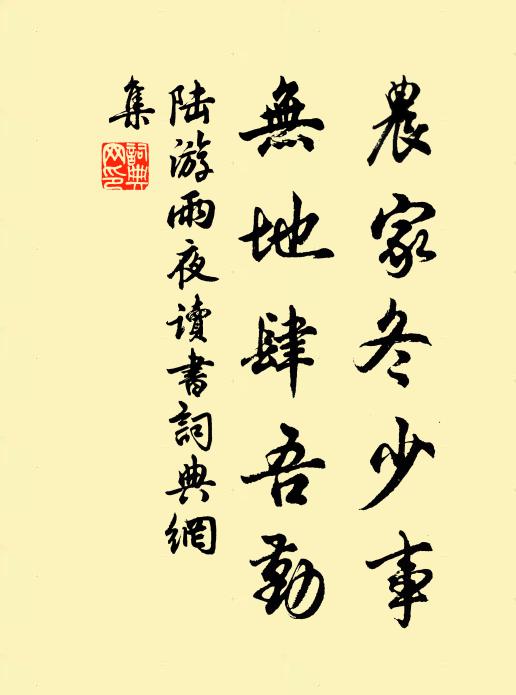 農家冬少事
無地肆吾勤
陆游雨夜讀書詞典網
集
詞典網印